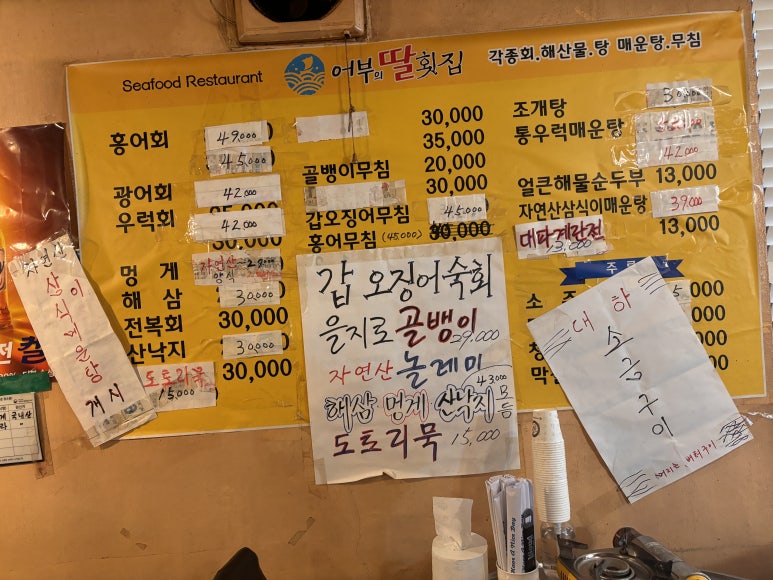 Seafood Restaurant
어부의 딸 횟집
각종회.해산물.탕 매운탕.무침
홍어회 49,000
45,000
광어회 42,000
우럭회 42,000
30,000
멍게 자연산
양식
해삼 30,000
전복회 30,000
산낙지 30,000
30,000
도토리묵
15,000
30,000
35,000
골뱅이무침 20,000
30,000
갑오징어무침 45,000
홍어무침 (45,000) 30,000
조개탕 30,000
통우럭매운탕
42,000
얼큰해물순두부 13,000
자연산삼식이매운탕 39,000
13,000
13,000
자연산
삼식이
매운탕
개시
갑오징어숙회
을지로 골뱅이 29,000
자연산 놀래미
해삼 멍게 산낙지 모듬
43000
도토리묵 15,000
000
000
000
000
대하
소금구이
버터구이
국내산
Have A Nice Day